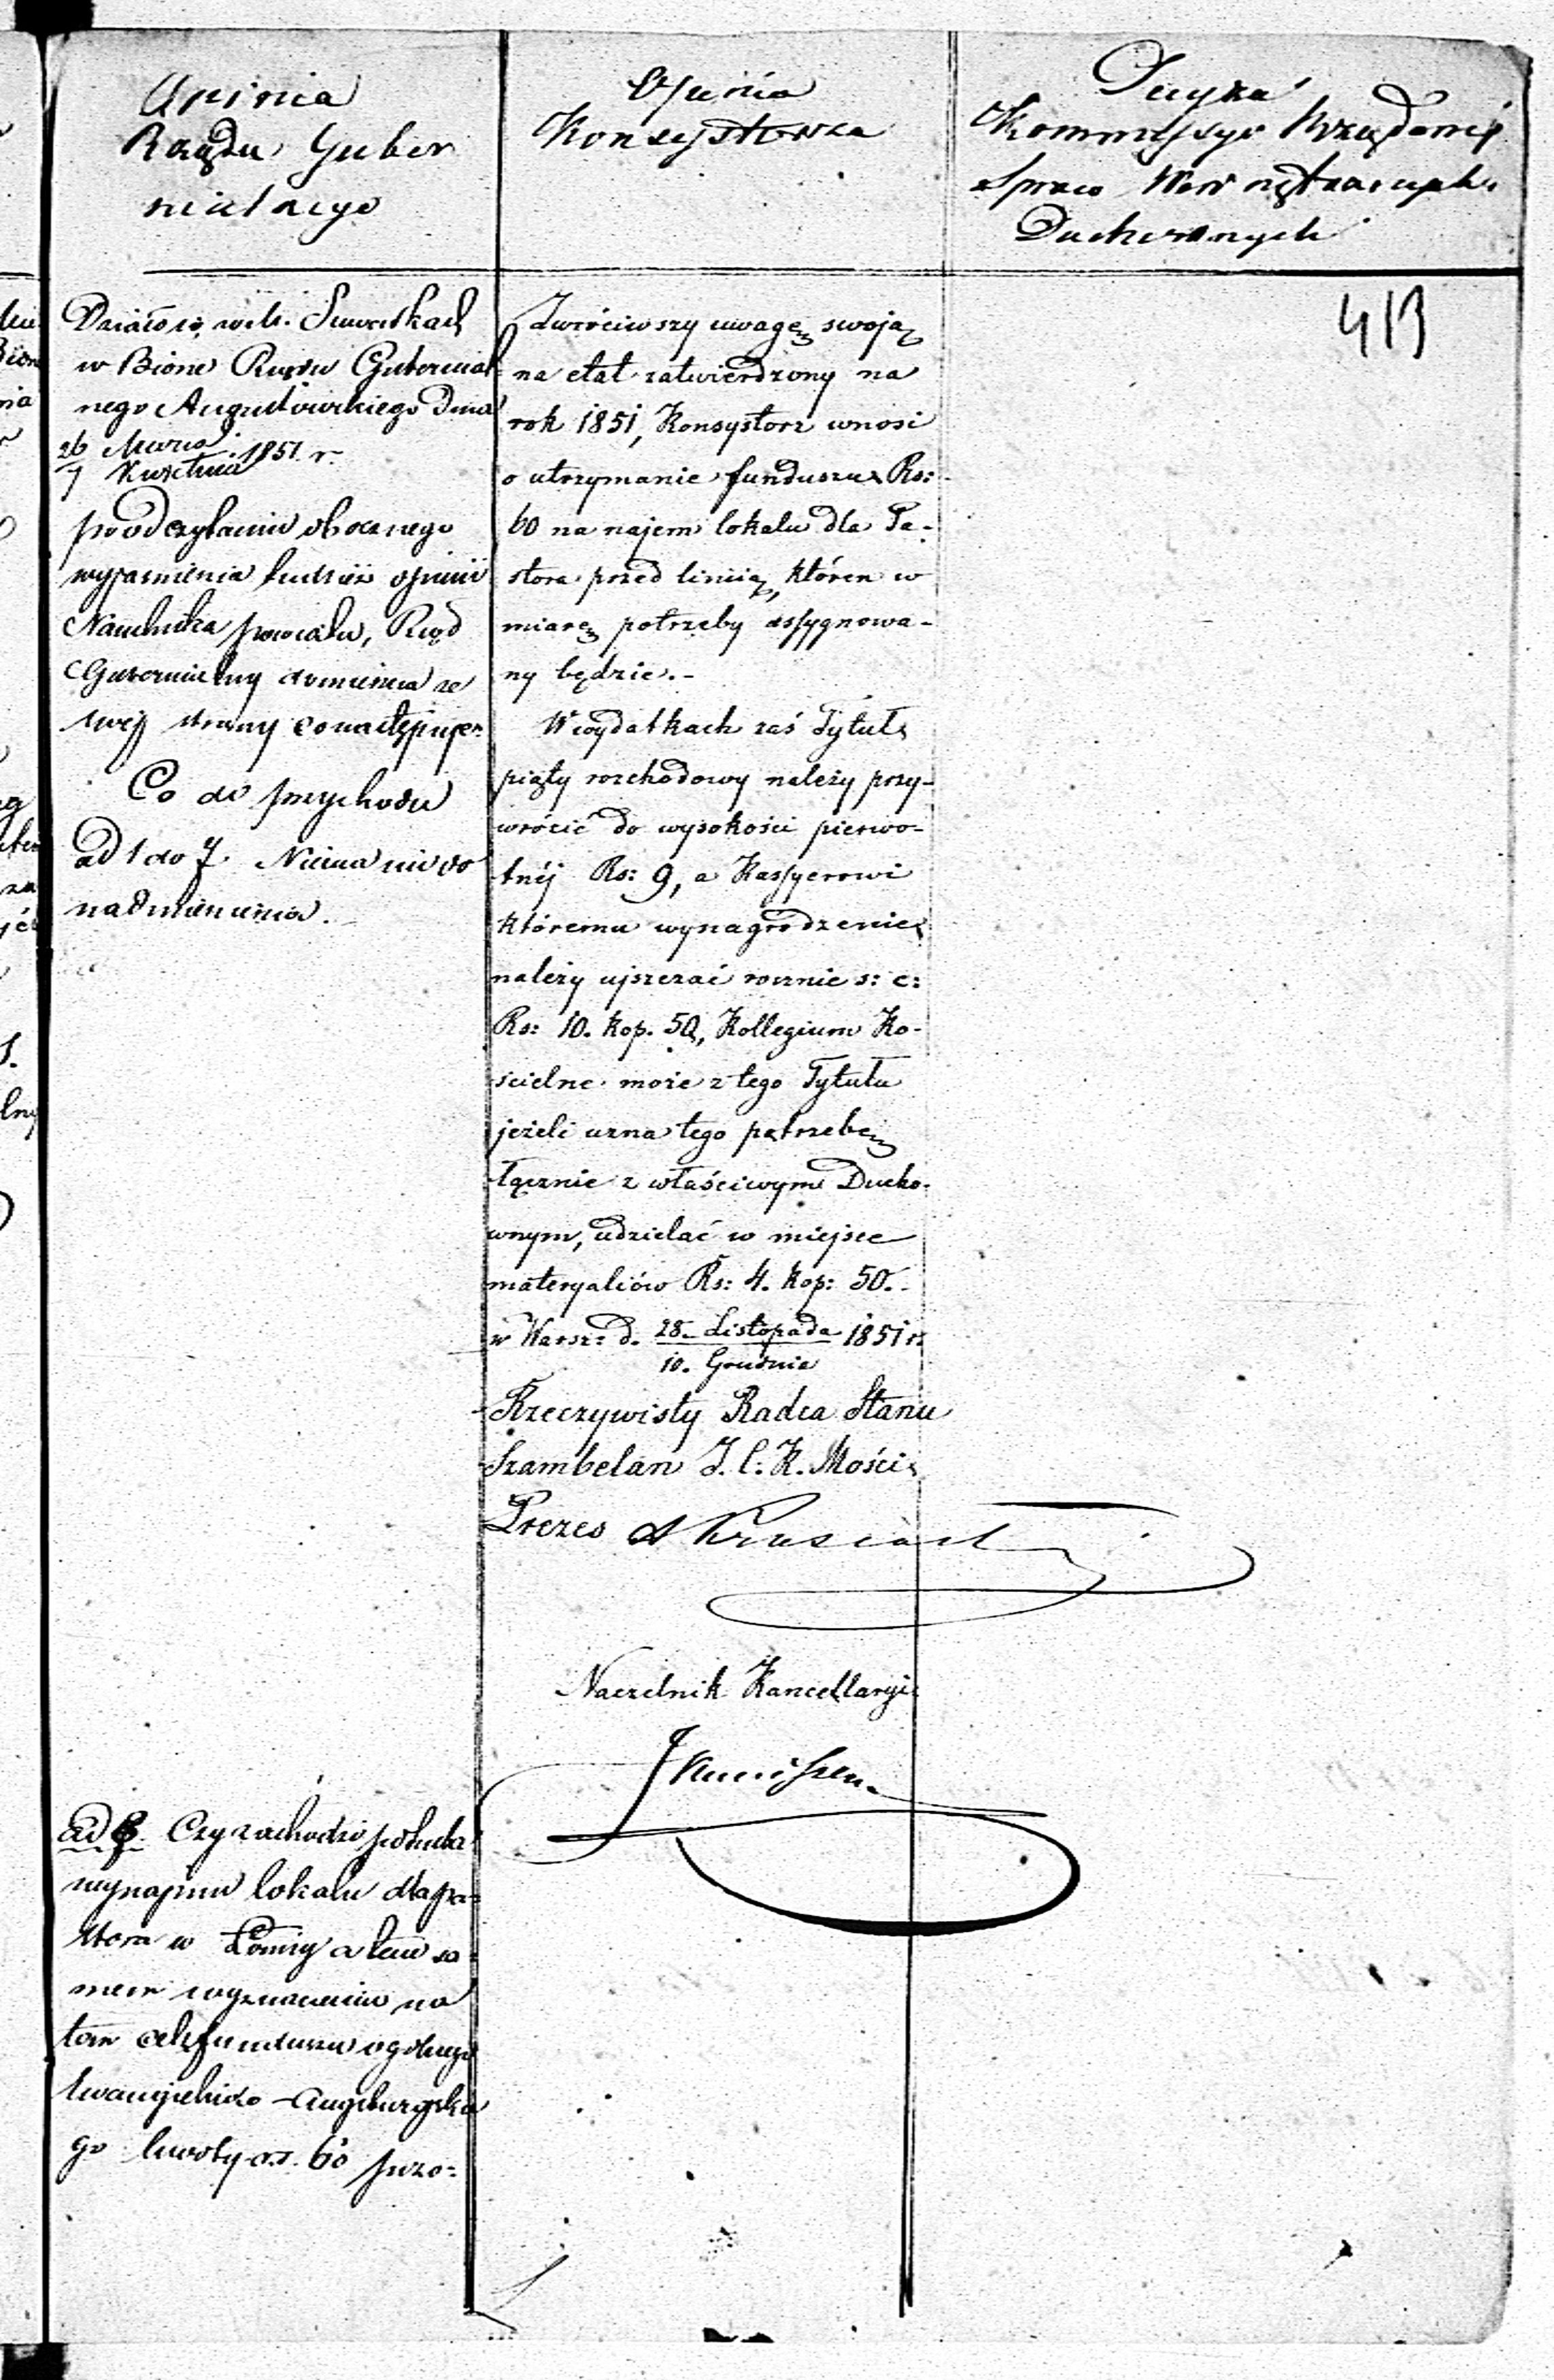 Opinia
Rządu Guber
nialnego
Działo się w m. Suwałkach
w Biórze Rządu Gubernial
nego Augustowskiego Dnia
26 Marca
7 Kwietnia 1851 r.
po odczytaniu obocznego
wyjaśnienia tudzież opinii
Naczelnika powiatu, Rząd
Gubernialny nadmienia ze
swej strony co następuje:
Co do przychodu
ad 1 do 7. Niema nic do
nadmienienia.
ad 8. Czy zachodzi potrzeba
wynajmu lokalu dla pa-
stora w Łomży a tem sa-
mem wyznaczenia na
ten cel z funduszu ogólnego
Ewangielicko-Augsburgskie
go kwoty rs. 60 prze-
Opinia
Konsystorza
Zwróciwszy uwagę swoją
na etat zatwierdzony na
rok 1851, Konsystorz wnosi
o utrzymanie funduszu Rs:
60 na najem lokalu dla Pa-
stora przed linią, któren w
miarę potrzeby assygnowa-
ny będzie.-
W wydatkach zaś Tytuł
piąty rozchodowy należy przy-
wrócić do wysokości pierwo-
tnéj Rs: 9, a Kassyerowi
któremu wynagrodzenie
należy ujszczać rocznie s: c:
Rs: 10. kop. 50, Kollegium Ko-
ścielne może z tego Tytułu
jeżeli uzna tego potrzebę
łącznie z właściwym Ducho-
wnym, udzielać w miejsce
materyałów Rs: 4. kop: 50.-
w Warsz: d. 28. Listopada 1851 r.
10. Grudnia
Rzeczywisty Radca Stanu
Szambelan J. C. K. Mości
Prezes
Naczelnik Kancellaryi
Decyzia
Kommissyi Rządowej
Spraw Wewnętrznych
Duchownych
413